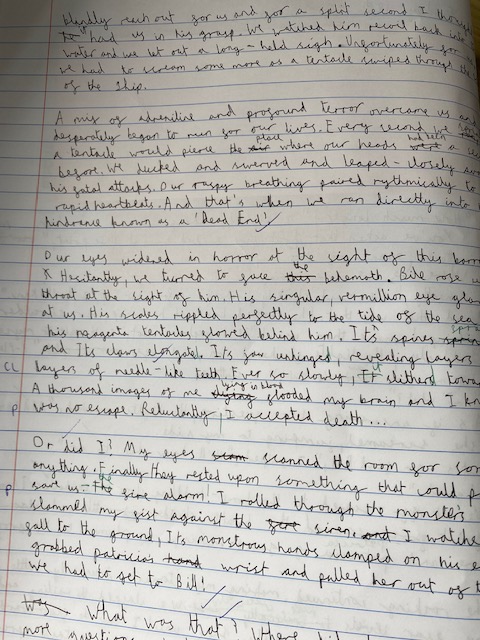 blindly reach out for us and for a split second I thoug
had us in his grasp. We watched him recoil back into
water and we let out a long-held sigh. Unfortunately for
We had to scream some more as a tentacle swiped through the
of the ship.
A mix of adreniline and profound terror overcame us and
desperately began to run for our lives. Every second we
a tentacle would pierce the air place where our heads were had been a
before. We ducked and swerved and leaped - closely
his fatal attacks. Our raspy breathing paired rythmically to
rapid heartbeats. And that's when we ran directly into
hindrance known as a 'Dead End'
Our eyes widened in horror at the sight of this
Hesitantly, we turned to face this the behemoth. Bile rose
throat at the sight of him. His singular, vermillion eye
at us. His scales rippled perfectly to the tide of the sea
his tentacles flowed behind him. It's spines
and Its claws elongated. Its jaw unhinged, revealing layers
CL layers of needle-like teeth. Ever so slowly, It slithered towa
A thousand images of me dying lying in blood flooded my brain and I kn
P was no escape. Reluctantly, I accepted death...
Or did I? My eyes scanned the room for som
anything. Finally they rested upon something that could
P save us - The fire alarm! I rolled through the monsters
slammed my fist against the fire siren and I watche
fall to the ground, Its monstrous hands clamped on his e
grabbed patricia's hand wrist and pulled her out of t
We had to get to Bill!
Was What was that? Where
more questions